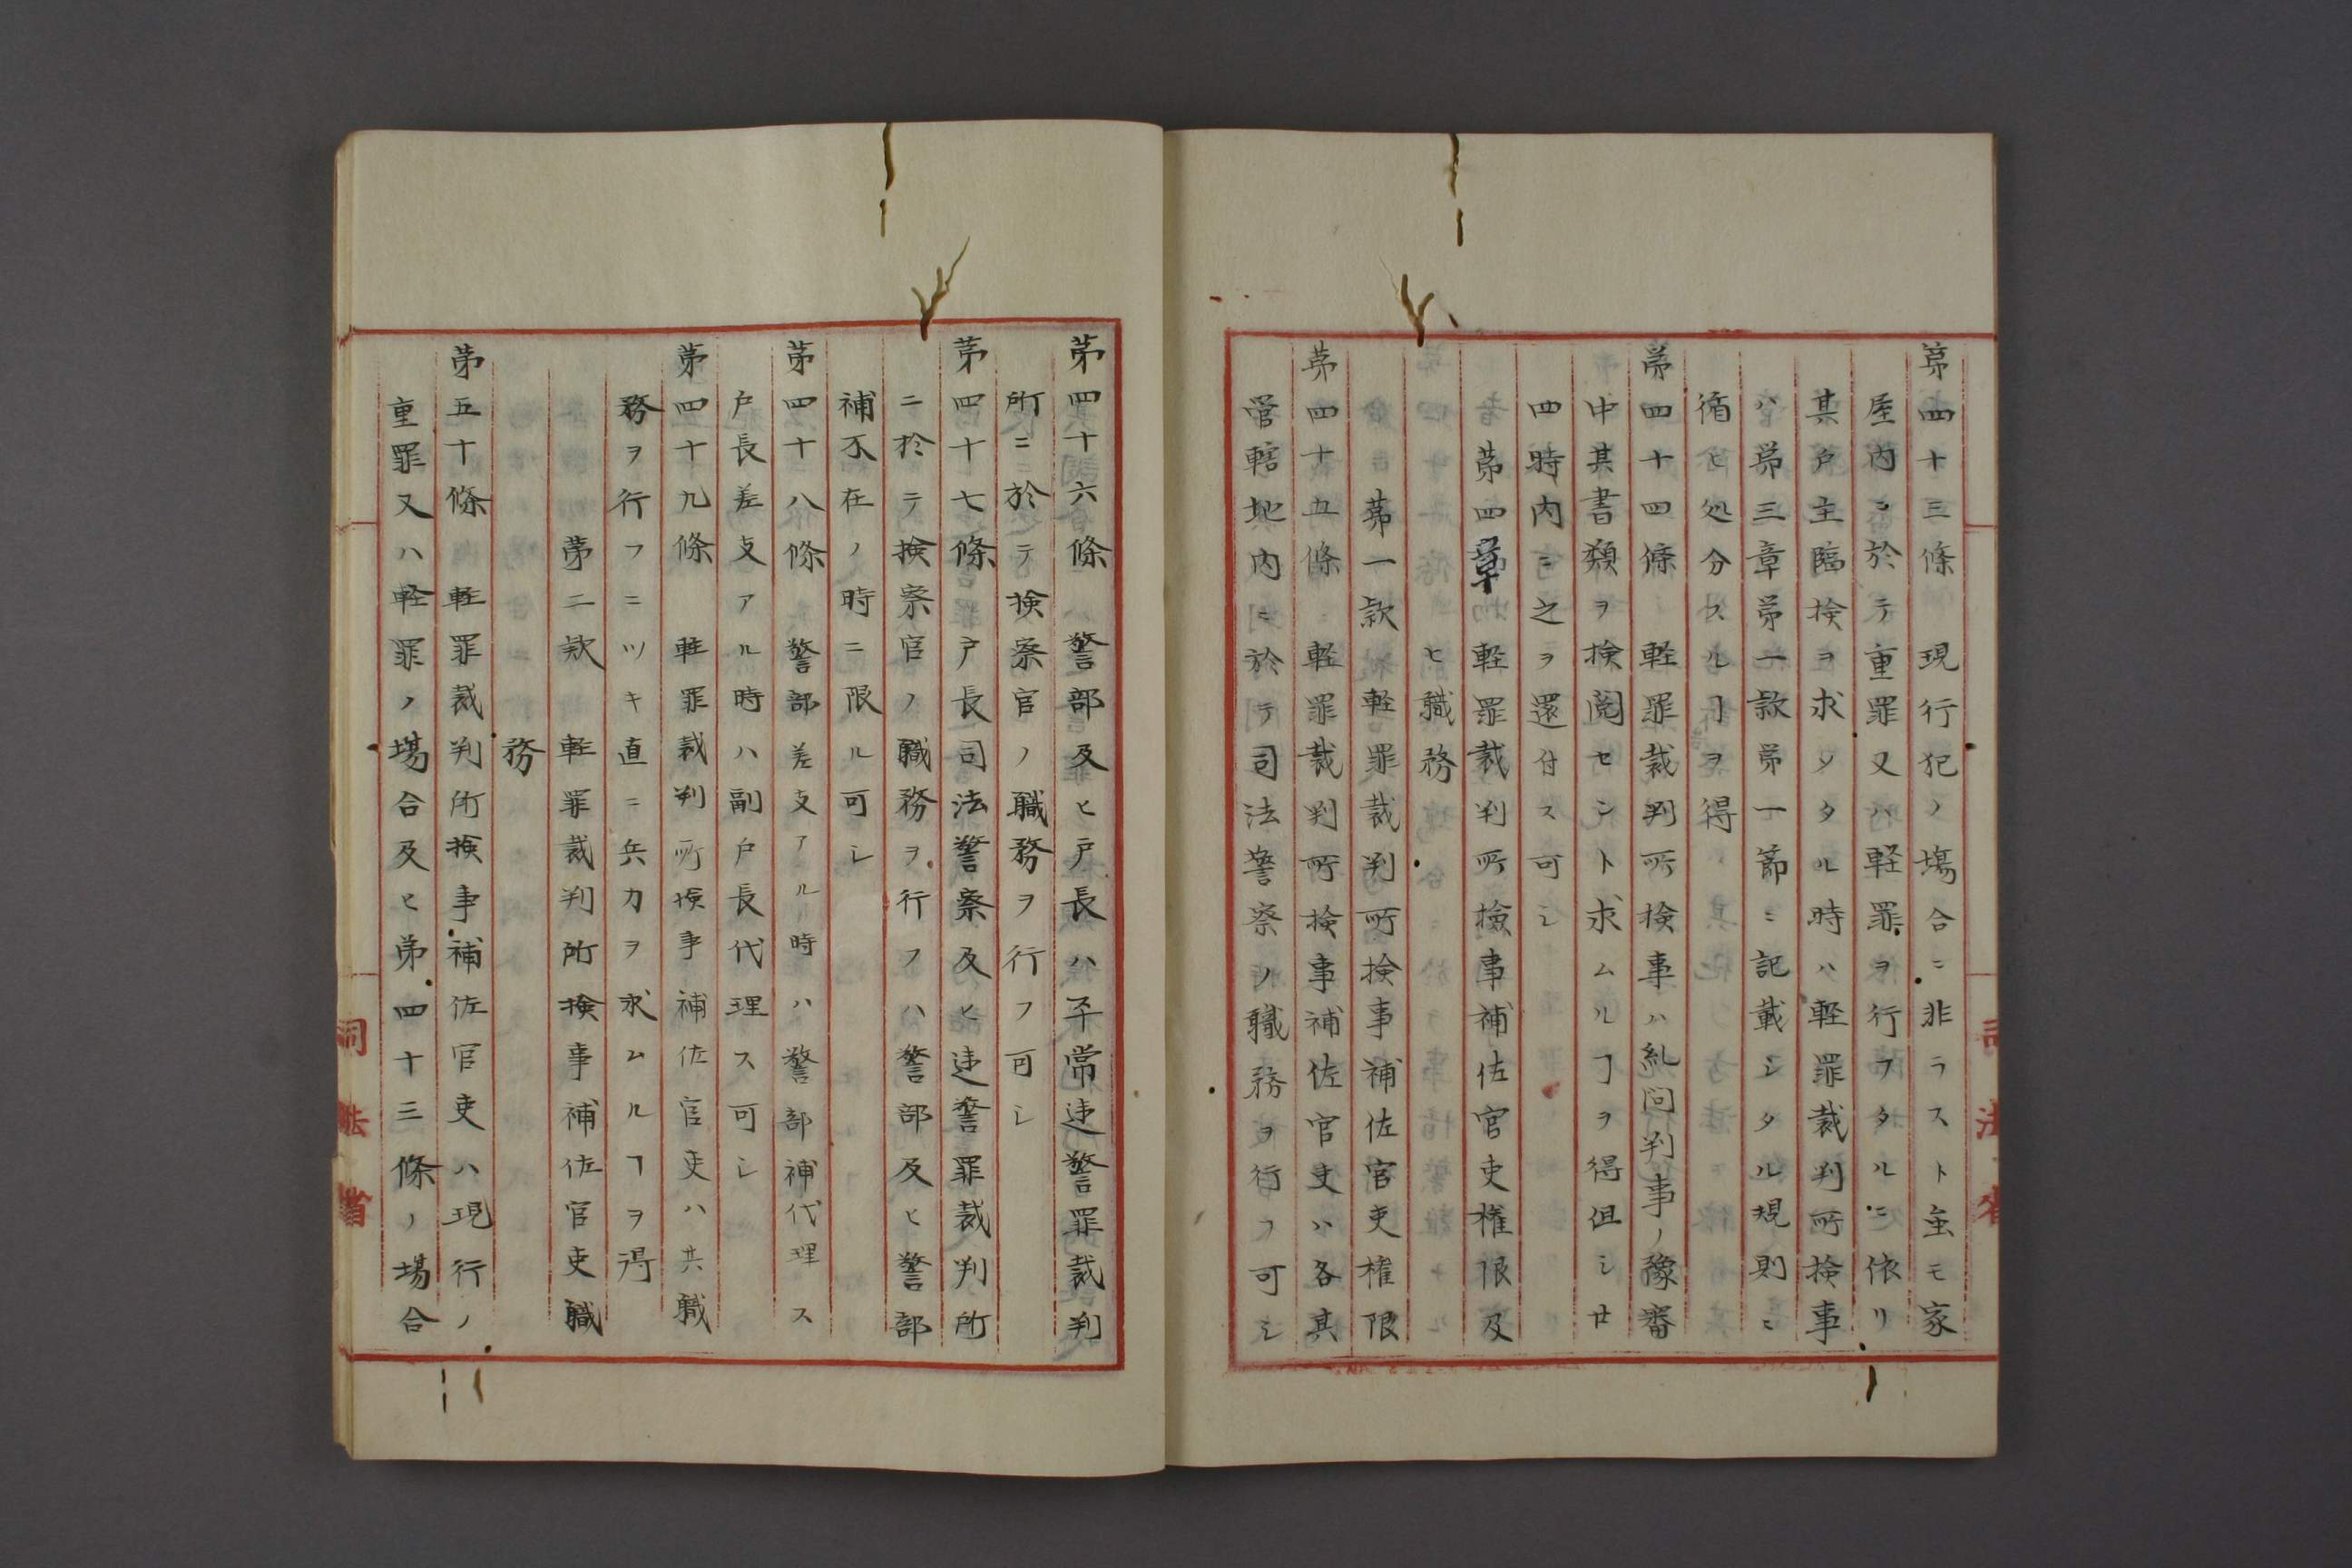 第四十三條　現行犯ノ場合ニ非ラスト雖モ家
屋內ニ於テ重罪又ハ軽罪ヲ行フタルニ依リ
其戸主臨検ヲ求メタル時ハ軽罪裁判所検事
ハ第三章第一款第一節ニ記載シタル規則ニ
循ヒ処分スルヿヲ得
第四十四條　軽罪裁判所検事ハ糺問判事ノ豫審
中其書類ヲ検閲セント求ムルヿヲ得但シ廿
四時内ニ之ヲ還付ス可シ
第四章　軽罪裁判所検事補佐官吏権限及
ヒ職務
第一款　軽罪裁判所検事補佐官吏権限
第四十五條　軽罪裁判所検事補佐官吏ハ各其
管轄地内ニ於テ司法警察ノ職務ヲ行フ可シ
司法省
第四十六條　警部及ヒ戸長ハ平常違警罪裁判
所ニ於テ検察官ノ職務ヲ行フ可シ
第四十七條　戸長司法警察及ヒ違警罪裁判所
ニ於テ検察官ノ職務ヲ行フハ警部及ヒ警部
補不在ノ時ニ限ル可シ
第四十八條　警部差支アル時ハ警部補代理ス
戸長差支アル時ハ副戸長代理ス可シ
第四十九條　軽罪裁判所検事補佐官吏ハ其職
務ヲ行フニツキ直ニ兵力ヲ求ムルヿヲ得
第二款　軽罪裁判所検事補佐官吏職
務
第五十條　軽罪裁判所検事補佐官吏ハ現行ノ
重罪又ハ軽罪ノ場合及ヒ第四十三條ノ場合
司法省